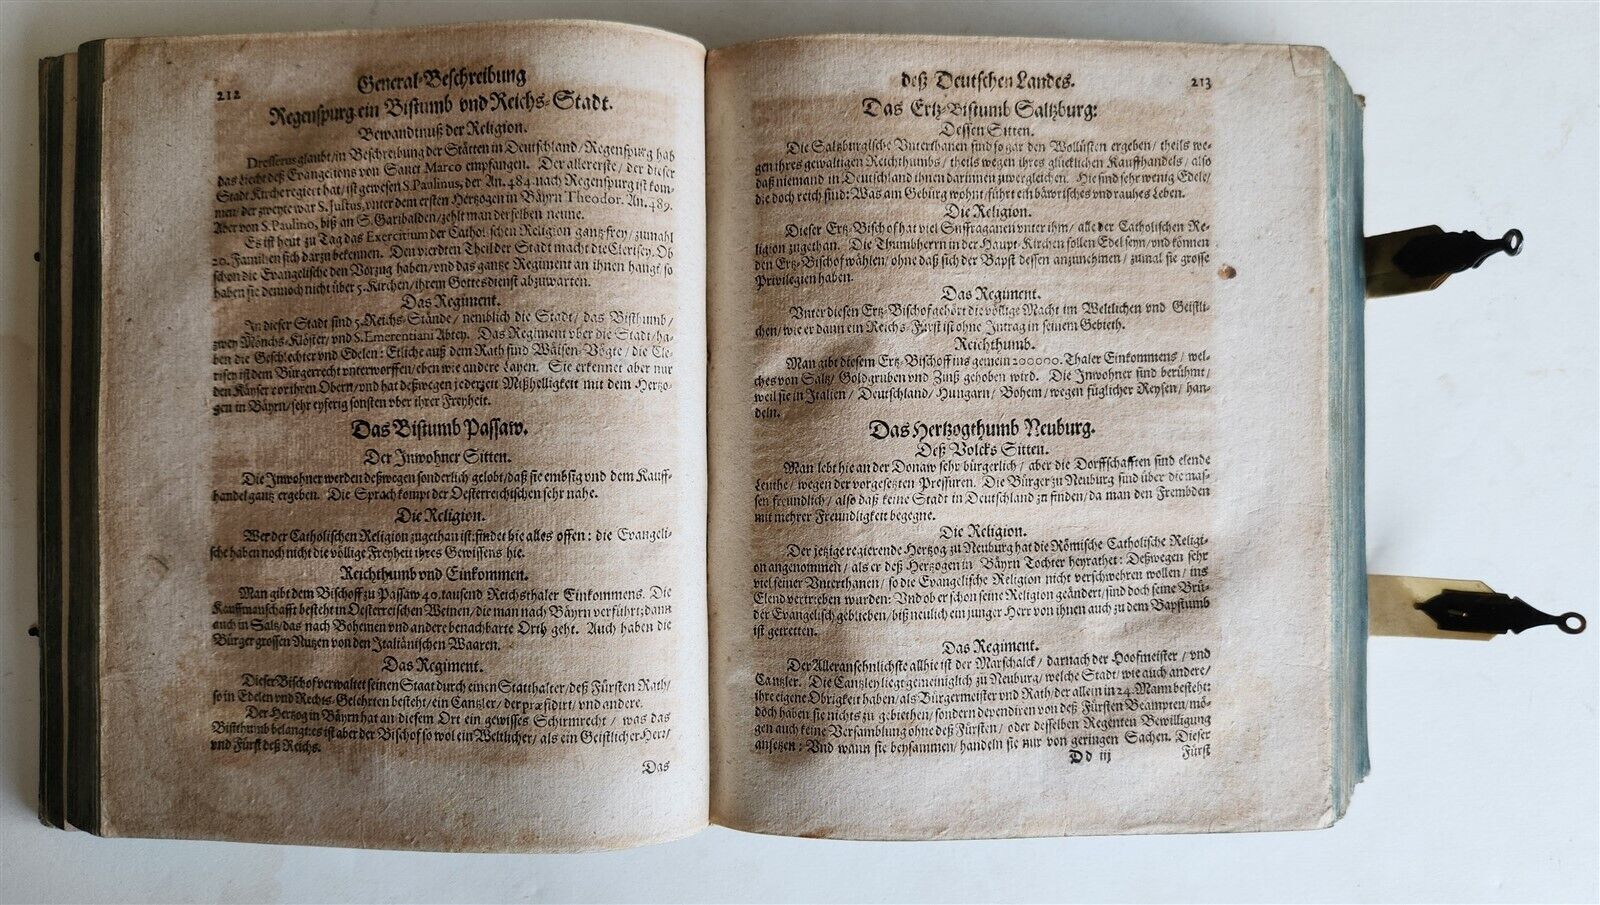 212
General-Beschreibung
Regenspurg ein Bistumb vnd Reichs-Stadt.
Bewandtnuß der Religion.
Dresserus glaubt/in Beschreibung der Stätten in Deutschland/Regenspurg hab
das Liecht deß Evangelions von Sanct Marco empfangen. Der allererste/der dieser
Stadt Kirche regiert hat/ist gewesen S. Paulinus, der An. 484. nach Regenspurg ist kom-
men/der zweyte war S. Justus, vnter dem ersten Hertzogen in Bäyrn Theodor. An. 489.
Aber von S. Paulino, biß an S. Garibalden/zehlt man derselben neune.
Es ist heut zu Tag das Exercitium der Catholischen Religion gantz frey/zumahl
20. Familien sich darzu bekennen. Den vierdten Theil der Stadt macht die Clerisey. Ob
schon die Evangelische den Vorzug haben/vnd das gantze Regiment an ihnen hangt/so
haben sie dennoch nicht über 5. Kirchen/ihrem Gottesdienst abzuwarten.
Das Regiment.
In dieser Stadt sind 5. Reichs-Stände/nemblich die Stadt/das Bisthumb/
zwey Mönchs-Klöster/vnd S. Emerentiani Abtey. Das Regiment vber die Stadt/ha-
ben die Geschlechter vnd Edelen: Etliche auß dem Rath sind Wäisen-Vögte/die Cle-
risey ist dem Bürgerrecht vnterworffen/eben wie andere Layen. Sie erkennet aber nur
den Käyser vor ihren Obern/vnd hat deßwegen jederzeit Mißhelligkeit mit dem Hertzo-
gen in Bäyrn/sehr eyferig sonsten vber ihrer Freyheit.
Das Bistumb Passaw.
Der Inwohner Sitten.
Die Inwohner werden deßwegen sonderlich gelobt/daß sie embsig vnd dem Kauff-
handel gantz ergeben. Die Sprach kompt der Oesterreichischen sehr nahe.
Die Religion.
Wer der Catholischen Religion zugethan ist: findet hie alles offen: die Evangeli-
sche haben noch nicht die völlige Freyheit ihres Gewissens hie.
Reichthumb vnd Einkommen.
Man gibt dem Bischoff zu Passaw 40. tausend Reichsthaler Einkommens. Die
Kauffmanschafft besteht in Oesterreischen Weinen/die man nach Bäyrn verführt; dann
auch in Saltz/das nach Bohemen vnd andere benachbarte Orth geht. Auch haben die
Bürger grossen Nutzen von den Italiänischen Waaren.
Das Regiment.
Dieser Bischof verwaltet seinen Staat durch einen Statthalter/deß Fürsten Rath/
so in Edelen vnd Rechts-Gelehrten besteht/ein Cantzler/der præsidirt/vnd andere.
Der Hertzog in Bäyrn hat an diesem Ort ein gewisses Schirmrecht/was das
Bisthumb belangt: es ist aber der Bischof so wol ein Weltlicher/als ein Geistlicher Herr/
vnd Fürst deß Reichs.
Das
deß Deutschen Landes.
213
Das Ertz-Bistumb Saltzburg:
Dessen Sitten.
Die Saltzburgische Vnterthanen sind so gar den Wollüsten ergeben/theils we-
gen ihres gewaltigen Reichthumbs/theils wegen ihres glücklichen Kauffhandels/also
daß niemand in Deutschland ihnen darinnen zuvergleichen. Hie sind sehr wenig Edele/
die doch reich sind: Was am Gebürg wohnt/führt ein bäwrisches vnd rauhes Leben.
Die Religion.
Dieser Ertz-Bischof hat viel Suffraganen vnter ihm/alle der Catholischen Re-
ligion zugethan. Die Thumbherrn in der Haupt-Kirchen sollen Edel seyn/vnd können
den Ertz-Bischof wählen/ohne daß sich der Bapst dessen anzunehmen/zumal sie grosse
Privilegien haben.
Das Regiment.
Vnter diesen Ertz-Bischof gehört die völlige Macht im Weltlichen vnd Geistli-
chen/wie er dann ein Reichs-Fürst ist ohne Intrag in seinem Gebieth.
Reichthumb.
Man gibt diesem Ertz-Bischoff ins gemein 200000. Thaler Einkommens/wel-
ches von Saltz/Goldgruben vnd Zinß gehoben wird. Die Inwohner sind berühmt/
weil sie in Italien/Deutschland/Hungarn/Bohem/wegen füglicher Reysen/han-
deln.
Das Hertzogthumb Neuburg.
Deß Volcks Sitten.
Man lebt hie an der Donaw sehr bürgerlich/aber die Dorffschafften sind elende
Leuthe/wegen der vorgesetzten Pressuren. Die Bürger zu Neuburg sind über die mas-
sen freundlich/also daß keine Stadt in Deutschland zu finden/da man den Frembden
mit mehrer Freundligkeit begegne.
Die Religion.
Der jetzige regierende Hertzog zu Neuburg hat die Römische Catholische Religi-
on angenommen/als er deß Hertzogen in Bäyrn Tochter heyrathet: Deßwegen sehr
viel seiner Vnterthanen/so die Evangelische Religion nicht verschwehren wollen/ins
Elend vertrieben wurden: Vnd ob er schon seine Religion geändert/sind doch seine Brü-
der Evangelisch geblieben/biß neulich ein junger Herr von ihnen auch zu dem Bapstumb
ist getretten.
Das Regiment.
Der Alleransehnlichste allhie ist der Marschalck/darnach der Hoofmeister/vnd
Cantzler. Die Cantzley liegt gemeiniglich zu Neuburg/welche Stadt/wie auch andere/
ihre eigene Obrigkeit haben/als Bürgermeister vnd Rath/der allein in 24. Mann besteht:
doch haben sie nichts zu gebiethen/sondern dependiren von deß Fürsten Beampten/mö-
gen auch keine Versamblung ohne deß Fürsten/oder desselben Regenten Bewilligung
ansetzen: Vnd wann sie beysammen/handeln sie nur von geringen Sachen. Dieser
Dd iij
Fürst